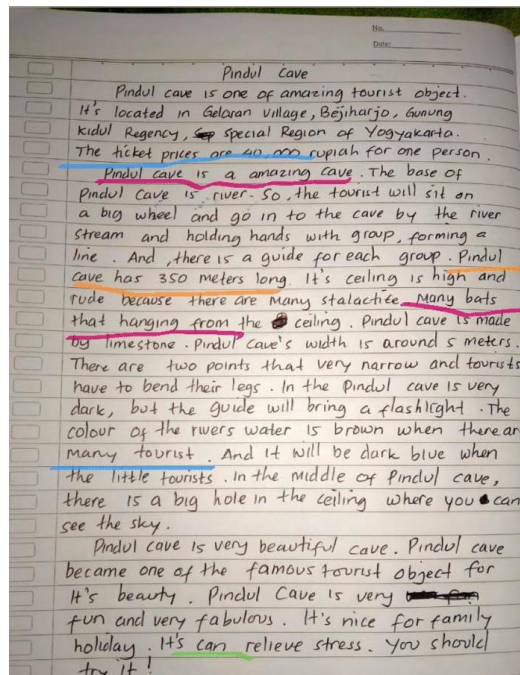 No.
Date:
Pindul cave
Pindul cave is one of amazing tourist object.
It's located in Gelaran Village, Bejiharjo, Gunung
Kidul Regency, special Region of Yogyakarta.
The ticket prices are 40.000 rupiah for one person.
Pindul cave is a amazing cave. The base of
Pindul Cave is river. So, the tourist will sit on
a big wheel and go in to the cave by the river
stream and holding hands with group, forming a
line. And, there is a guide for each group. Pindul
cave has 350 meters long. It's ceiling is high and
rude because there are many stalactite. Many bats
that hanging from the ceiling. Pindul cave is made
by limestone. Pindul cave's width is around 5 meters.
There are two points that very narrow and tourists
have to bend their legs. In the Pindul cave is very
dark, but the guide will bring a flashlight. The
colour of the rivers water is brown when there are
many tourist. And it will be dark blue when
the little tourists. In the middle of Pindul cave,
there is a big hole in the ceiling where you can
see the sky.
Pindul cave is very beautiful cave. Pindul cave
became one of the famous tourist object for
it's beauty. Pindul Cave is very
fun and very fabulous. It's nice for family
holiday. It's can relieve stress. You should
try it!